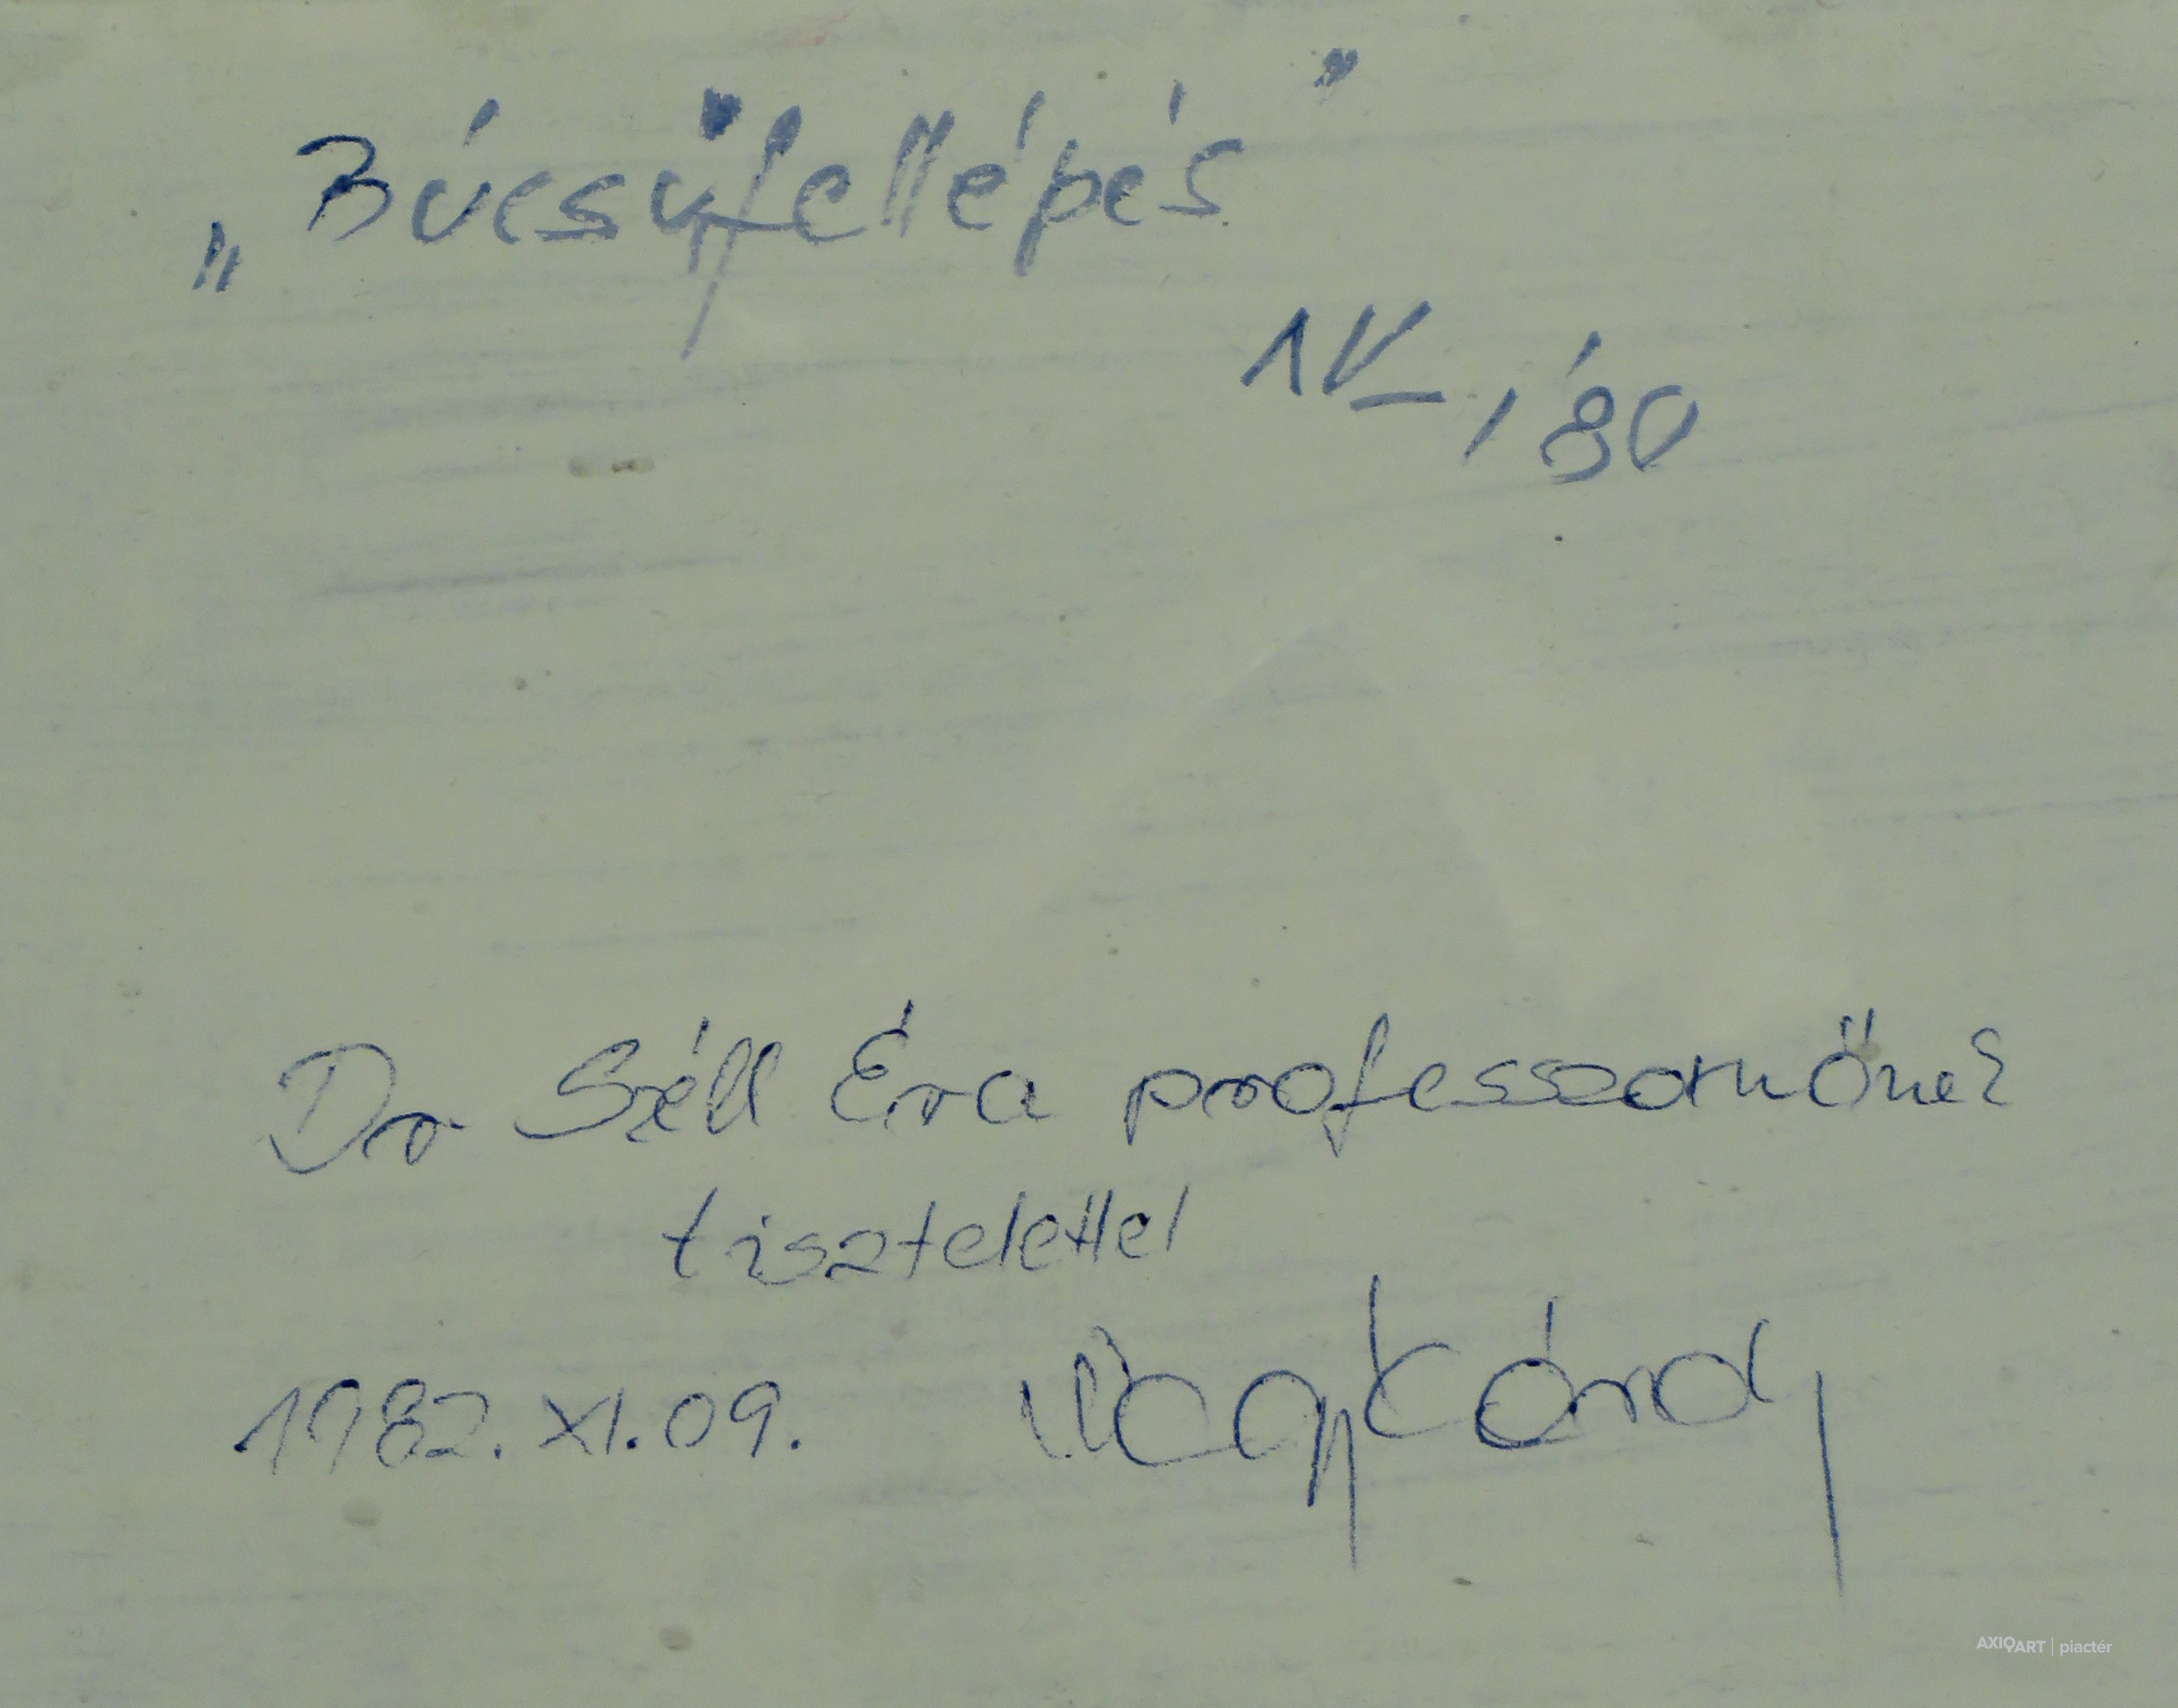 „Búcsúfellépés”
IV, '80
Dr Széll Éva professzornőnek
tisztelettel
1982. XI. 09.
AXIOART | piactér